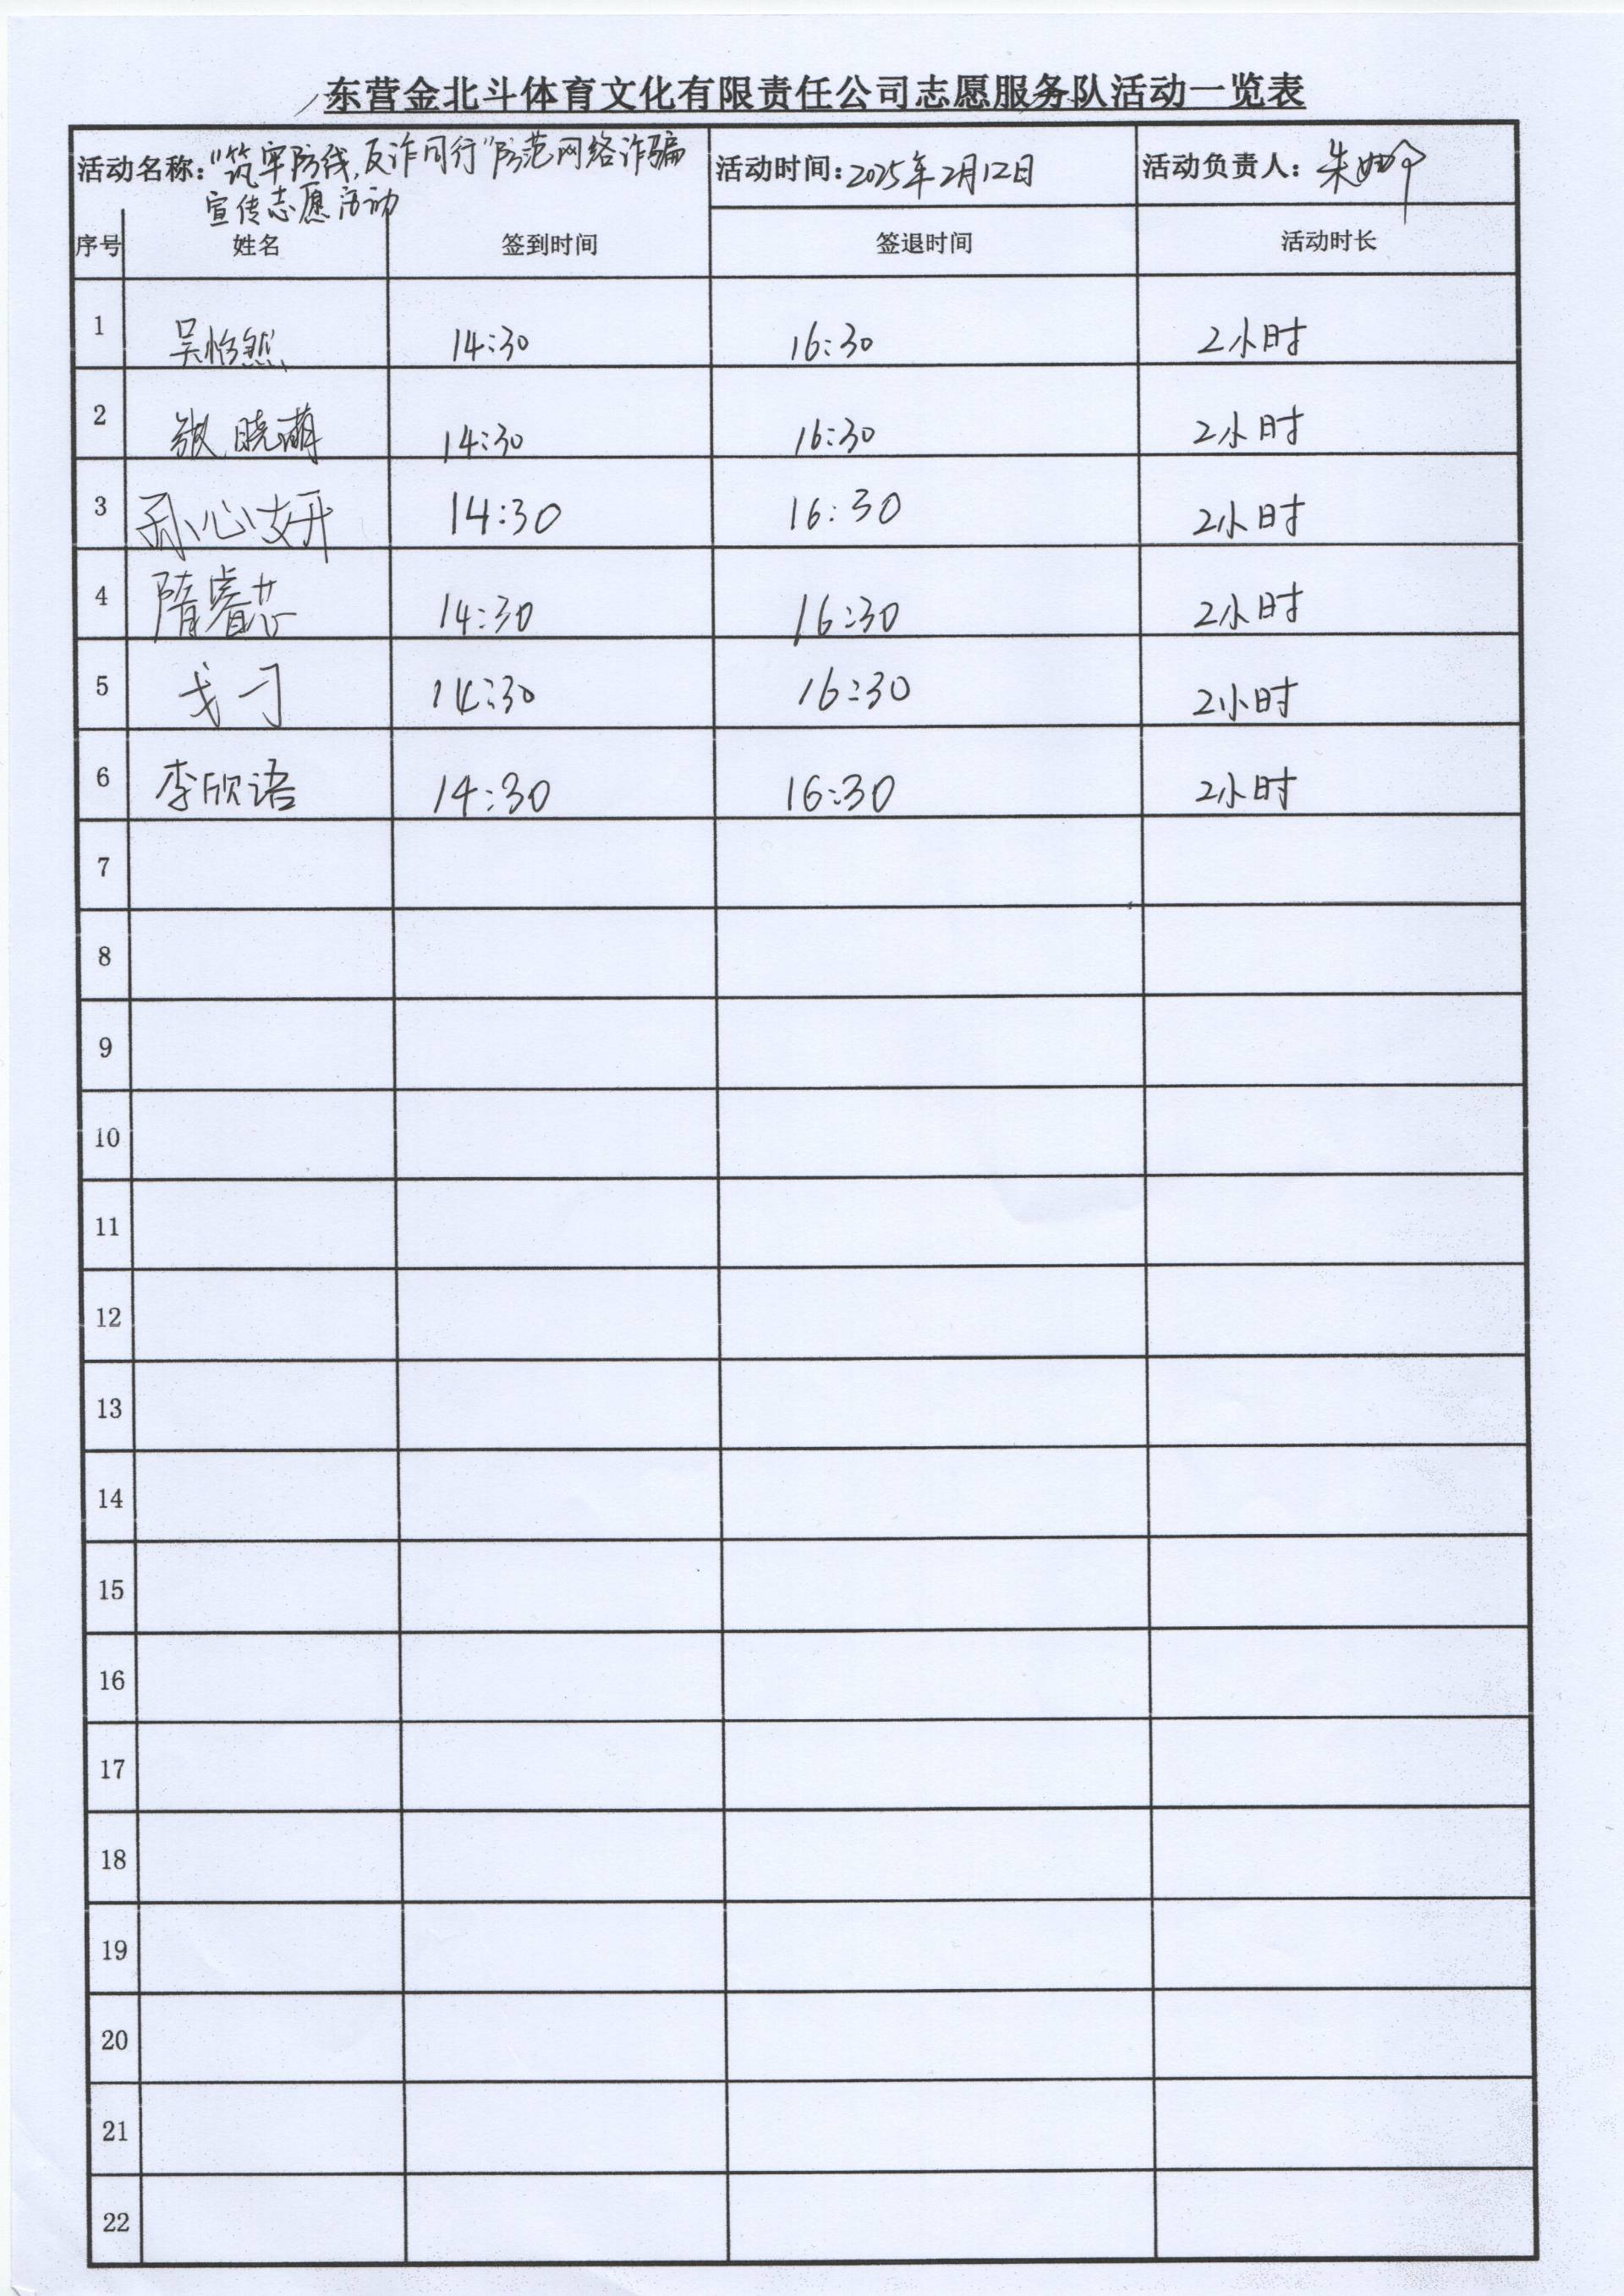 东营金北斗体育文化有限责任公司志愿服务队活动一览表
活动名称："筑牢防线,反诈同行"防范网络诈骗 活动时间：2025年2月12日 活动负责人：朱
宣传志愿活动
序号 姓名 签到时间 签退时间 活动时长
1 吴怡然 14:30 16:30 2小时
2 张晓萌 14:30 16:30 2小时
3 孙心妍 14:30 16:30 2小时
4 隋睿芯 14:30 16:30 2小时
5 戈刁 14:30 16:30 2小时
6 李欣语 14:30 16:30 2小时
7
8
9
10
11
12
13
14
15
16
17
18
19
20
21
22